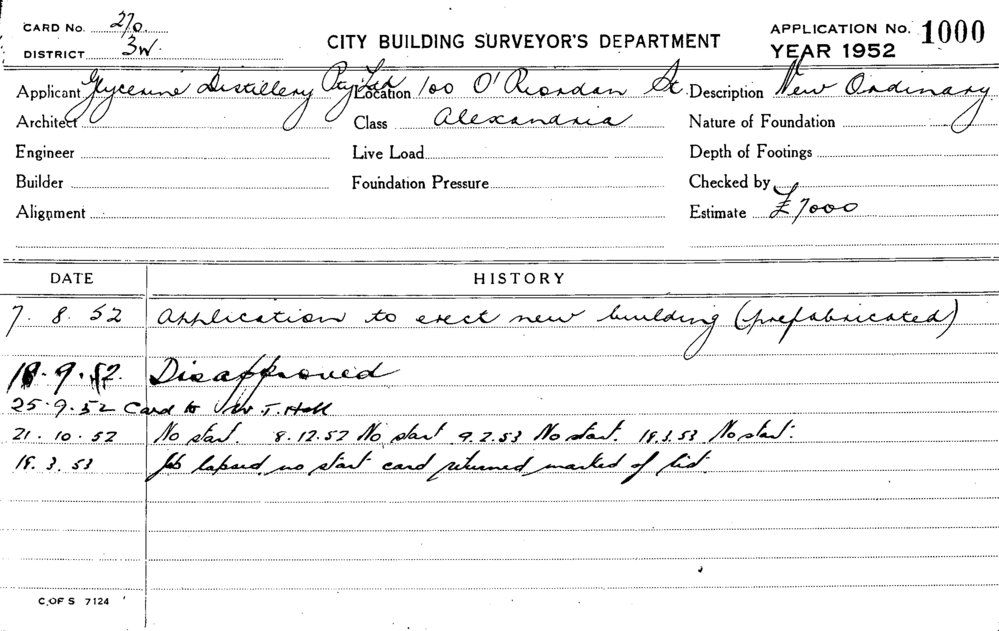 CARD No. 270.
DISTRICT 3W.
CITY BUILDING SURVEYOR'S DEPARTMENT
APPLICATION No. 1000
YEAR 1952
Applicant Glycerine Distillery Pty Ltd Location 100 O'Riordan St. Description New Ordinary
Architect Class Alexandria Nature of Foundation
Engineer Live Load Depth of Footings
Builder Foundation Pressure Checked by
Alignment Estimate £7000
DATE HISTORY
7. 8. 52 Application to erect new building (prefabricated)
18.9.52. Disapproved
25.9.52 Card to W. T. Hall
21.10.52 No start. 8.12.52 No start 9.2.53 No start. 18.3.53 No start.
18.3.53 Job lapsed, no start card returned marked of list.
C. OF S 7124